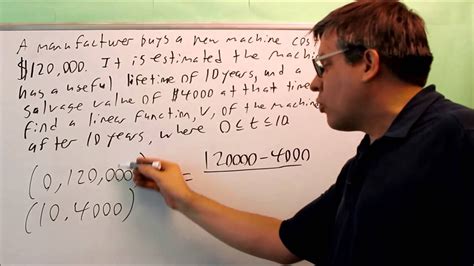 A manufacturer buys a new machine cost
$120,000. It is estimated the machin
has a useful lifetime of 10 years, and a
salvage value of $4000 at that time
find a linear function, V, of the machin
after 10 years, where 0≤t≤10.
(0,120,000) = 120000-4000
(10,4000)